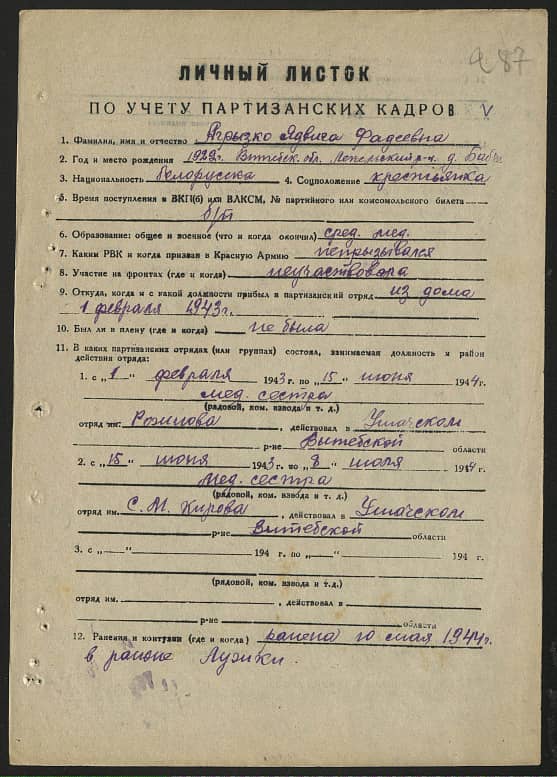 87
ЛИЧНЫЙ ЛИСТОК
ПО УЧЕТУ ПАРТИЗАНСКИХ КАДРОВ V
1. Фамилия, имя и отчество Агрызко Ядвига Фадеевна
2. Год и место рождения Витебск. обл. Лепельский р-н. д.
3. Национальность белорусска 4. Соцположение крестьянка
5. Время поступления в ВКП(б) или ВЛКСМ, № партийного или комсомольского билета
б/п
6. Образование: общее и военное (что и когда окончил) сред. мед.
7. Каким РВК и когда призван в Красную Армию непрызывался
8. Участие на фронтах (где и когда) неучаствовала
9. Откуда, когда и с какой должности прибыл в партизанский отряд из дома
1 февраля 1943г.
10. Был ли в плену (где и когда) не была
11. В каких партизанских отрядах (или группах) состоял, занимаемая должность и район
действия отряда:
1. с „1" февраля 1943 г. по „15" июня 1944г.
мед. сестра
(рядовой, ком. взвода и т. д.)
отряд им. , действовал в Ушачском
р-не Витебской области
2. с „15" июня 1943г. по „8" июля 1944 г.
мед. сестра
(рядовой, ком. взвода и т. д.)
отряд им. С. М. Кирова, действовал в Ушачском
р-не Витебской области
3. с „ " 194 г. по „ " 194 г.
(рядовой, ком. взвода и т.д.)
отряд им. , действовал в
р-не области
12. Ранения и контузии (где и когда) ранена 10 мая 1944г.
в районе